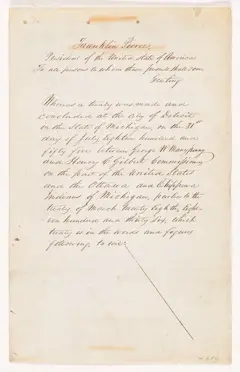 Franklin Pierce,
President of the United States of America
To all persons to whom these presents shall come
Greeting
Whereas a treaty was made and
concluded at the City of Detroit
in the State of Michigan, on the 31st
day of July Eighteen hundred and
fifty five between George W Manypenny
and Henry C Gilbert Commissioners
on the part of the United States
and the Ottawa and Chippewa
Indians of Michigan, parties to the
treaty of March Twenty Eighth, Eighteen
hundred and thirty six, which
treaty is in the words and figures
following to wit: